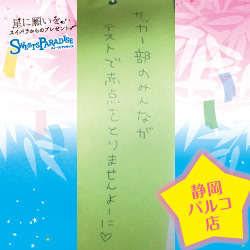 星に願いを
スイパラからのプレゼント
SWEETS PARADISE
サッカー部のみんなが
テストで赤点をとりませんよーに♡
静岡
パルコ
店